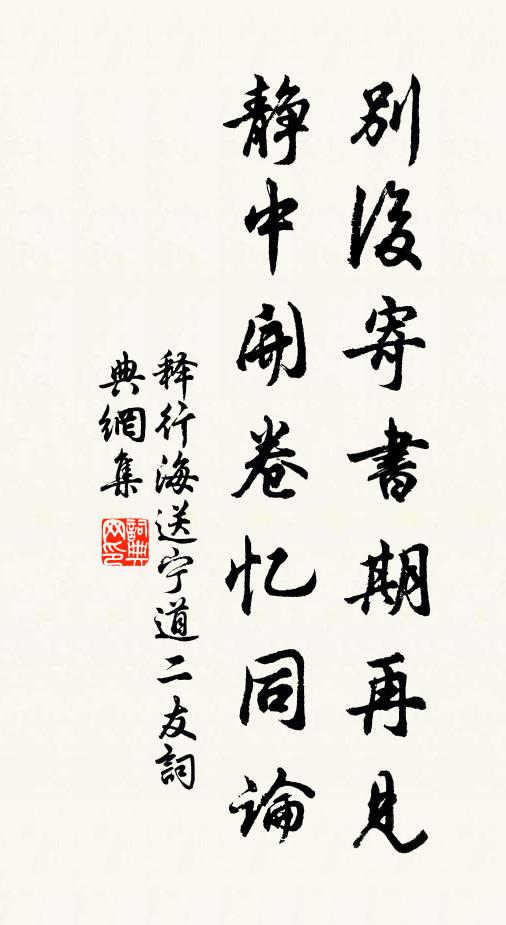 別後寄書期再見
靜中開卷忆同論
释行海送宁道二友詞
典網集
詞典
网印